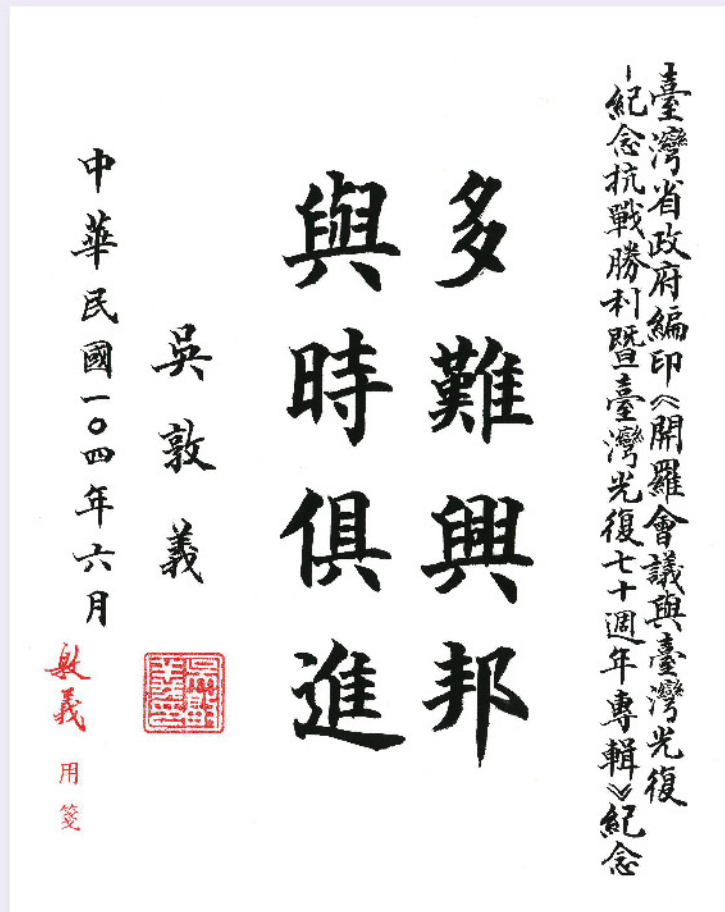 臺灣省政府編印《開羅會議與臺灣光復
-紀念抗戰勝利暨臺灣光復七十週年專輯》紀念
多難興邦
與時俱進
吳敦義
中華民國一〇四年六月
敦義用箋